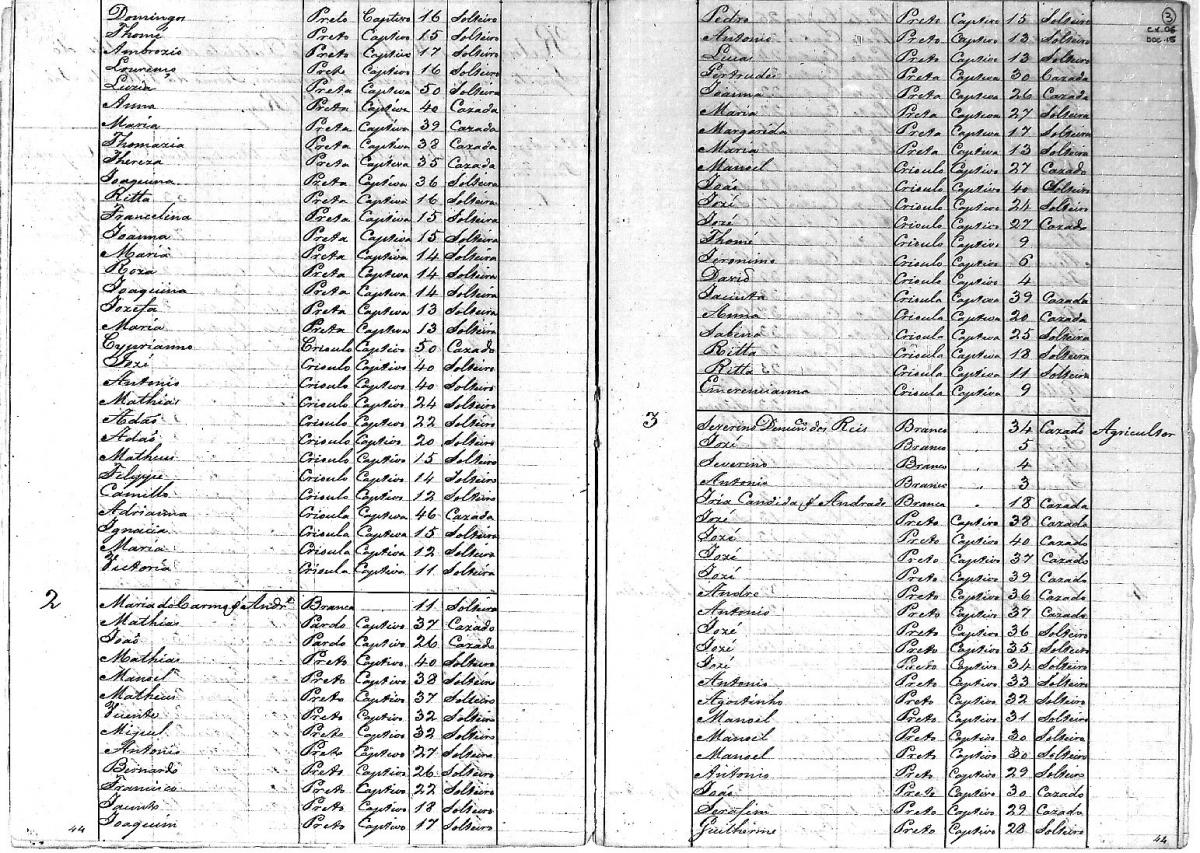 Domingos Preto Captivo 16 Solteiro
Thomé Preto Captivo 15 Solteiro
Ambrozio Preto Captivo 17 Solteiro
Lourenço Preto Captivo 16 Solteiro
Luzia Preta Captiva 50 Solteira
Anna Preta Captiva 40 Cazada
Maria Preta Captiva 39 Cazada
Thomazia Preta Captiva 38 Cazada
Thereza Preta Captiva 35 Cazada
Joaquina Preta Captiva 36 Solteira
Ritta Preta Captiva 16 Solteira
Francelina Preta Captiva 15 Solteira
Joanna Preta Captiva 15 Solteira
Maria Preta Captiva 14 Solteira
Roza Preta Captiva 14 Solteira
Joaquina Preta Captiva 14 Solteira
Jozefa Preta Captiva 13 Solteira
Maria Preta Captiva 13 Solteira
Cyprianno Crioulo Captivo 50 Cazado
Jozé Crioulo Captivo 40 Solteiro
Antonio Crioulo Captivo 40 Solteiro
Mathias Crioulo Captivo 24 Solteiro
Adão Crioulo Captivo 22 Solteiro
Adão Crioulo Captivo 20 Solteiro
Matheus Crioulo Captivo 15 Solteiro
Felippe Crioulo Captivo 14 Solteiro
Camillo Crioulo Captivo 12 Solteiro
Adrianna Crioula Captiva 46 Cazada
Ignacia Crioula Captiva 15 Solteira
Maria Crioula Captiva 12 Solteira
Victoria Crioula Captiva 11 Solteira
2 Maria do Carmo d' Andr.e Branca 11 Solteira
Mathias Pardo Captivo 37 Cazado
João Pardo Captivo 26 Cazado
Mathias Preto Captivo 40 Solteiro
Manoel Preto Captivo 38 Solteiro
Matheus Preto Captivo 37 Solteiro
Vicente Preto Captivo 32 Solteiro
Miguel Preto Captivo 32 Solteiro
Antonio Preto Captivo 27 Solteiro
Bernardo Preto Captivo 26 Solteiro
Francisco Preto Captivo 22 Solteiro
Jacinto Preto Captivo 18 Solteiro
Joaquim Preto Captivo 17 Solteiro
44
3
CX. 06
DOC. 15
Pedro Preto Captivo 15 Solteiro
Antonio Preto Captivo 13 Solteiro
Luca Preto Captivo 13 Solteiro
Gertrudes Preta Captiva 30 Cazada
Joanna Preta Captiva 26 Cazada
Maria Preta Captiva 27 Solteira
Margarida Preta Captiva 17 Solteira
Maria Preta Captiva 13 Solteira
Manoel Crioulo Captivo 27 Cazado
João Crioulo Captivo 40 Solteiro
Jozé Crioulo Captivo 24 Solteiro
Jozé Crioulo Captivo 27 Cazado
Thomé Crioulo Captivo 9
Jeronimo Crioulo Captivo 6
David Crioulo Captivo 4
Jacinta Crioula Captiva 39 Cazada
Anna Crioula Captiva 20 Cazada
Sabina Crioula Captiva 25 Solteira
Ritta Crioula Captiva 18 Solteira
Ritta Crioula Captiva 11 Solteira
Emerencianna Crioula Captiva 9
3 Severino dos Reis Branco 34 Cazado Agricultor
Jozé Branco 5
Severino Branco 4
Antonio Branco 3
Iria Candida d' Andrade Branca 18 Cazada
Jozé Preto Captivo 38 Cazado
Jozé Preto Captivo 40 Cazado
Jozé Preto Captivo 37 Cazado
Jozé Preto Captivo 39 Cazado
Andre Preto Captivo 36 Cazado
Antonio Preto Captivo 37 Cazado
Jozé Preto Captivo 36 Solteiro
Jozé Preto Captivo 35 Solteiro
Jozé Preto Captivo 34 Solteiro
Antonio Preto Captivo 33 Solteiro
Agostinho Preto Captivo 32 Solteiro
Manoel Preto Captivo 31 Solteiro
Manoel Preto Captivo 30 Solteiro
Manoel Preto Captivo 30 Solteiro
Antonio Preto Captivo 29 Solteiro
João Preto Captivo 30 Cazado
Serafim Preto Captivo 29 Cazado
Guilherme Preto Captivo 28 Solteiro
44